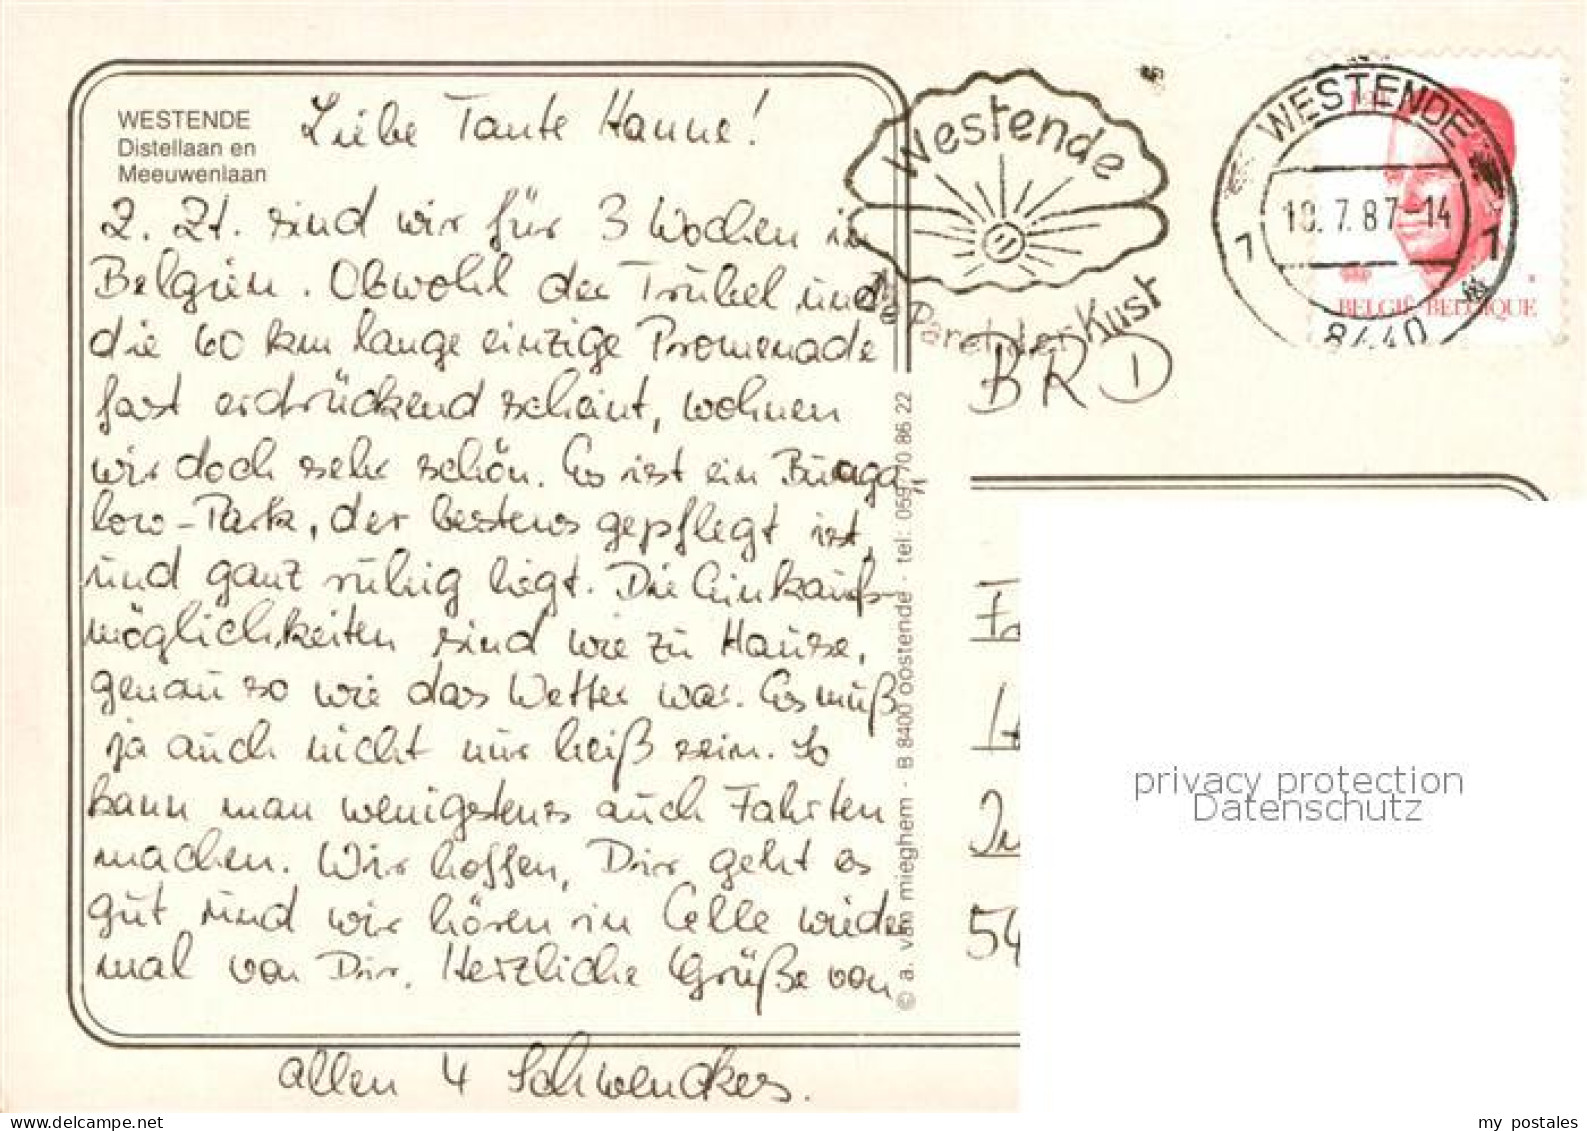 WESTENDE
Distellaan en
Meeuwenlaan
Liebe Tante Hanne!
z. Zt. sind wir für 3 Wochen in
Belgien. Obwohl der Trubel und
die 60 km lange einzige Promenade
fast erdrückend scheint, wohnen
wir doch sehr schön. Es ist ein Bunga
low-Park, der bestens gepflegt ist,
und ganz ruhig liegt. Die Einkaufs-
möglichkeiten sind wie zu Hause,
genau so wie das Wetter war. Es muß
ja auch nicht nur heiß sein. So
kann man wenigstens auch Fahrten
machen. Wir hoffen, Dir geht es
gut und wir hören in Celle wieder
mal von Dir. Herzliche Grüße von
allen 4 Schwenckes.
© a. van mieghem - B 8400 oostende - tel: 059/70.86.22
Westende
Parel der Kust
WESTENDE
10.7.87-14
1 1
8440
BELGIË-BELGIQUE
BRD
54
privacy protection
Datenschutz
www.delcampe.net
my_postales